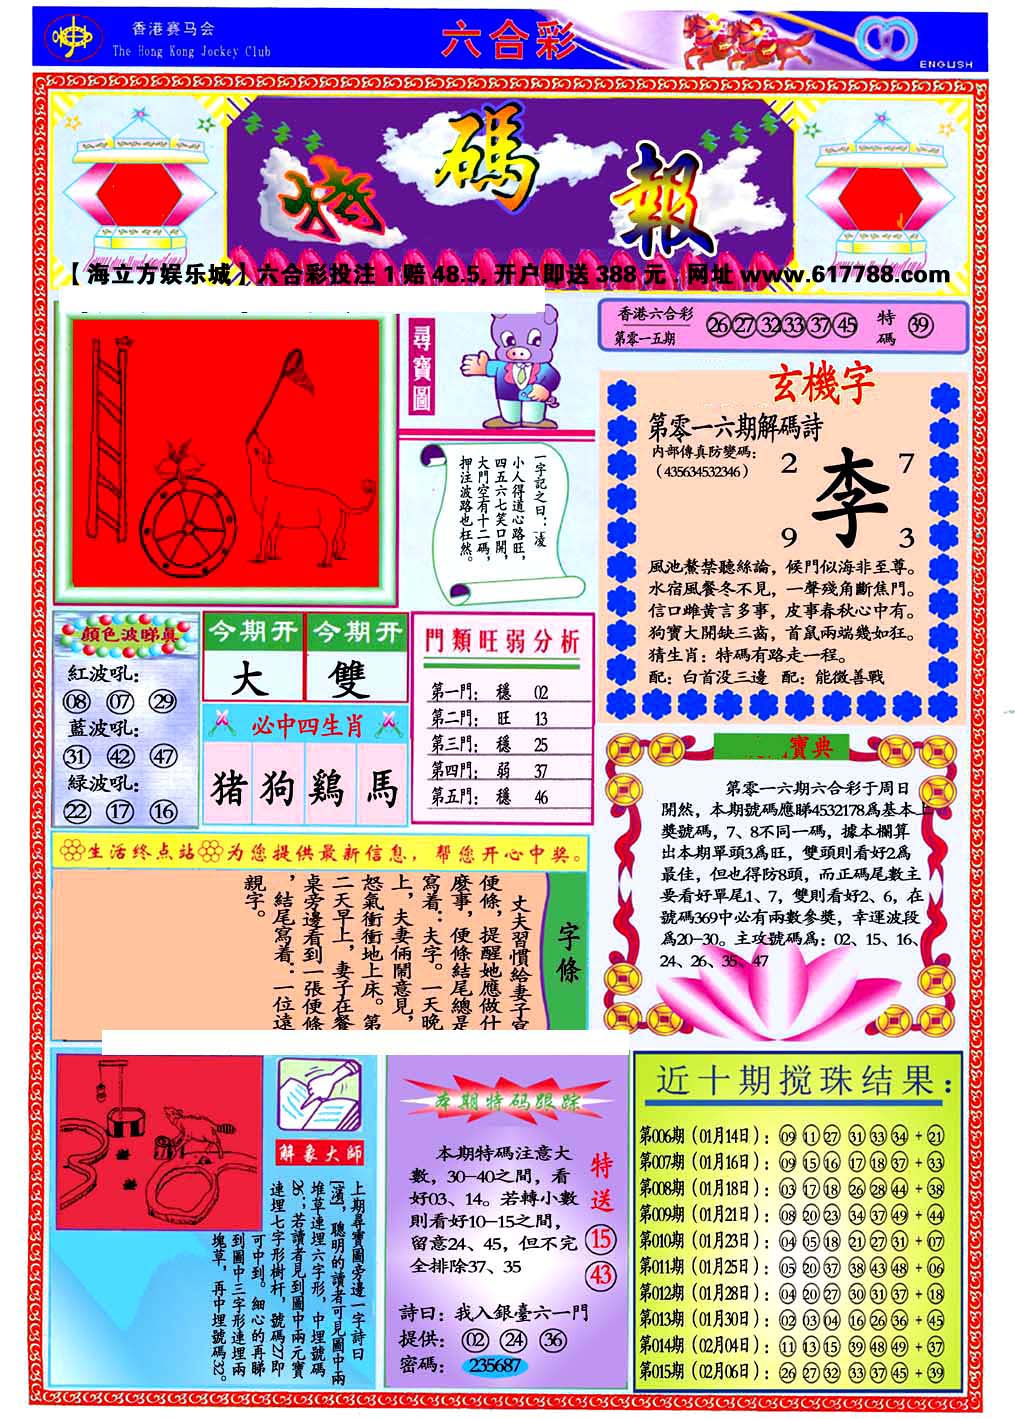 香港赛马会
The Hong Kong Jockey Club
六合彩
ENGLISH
特碼報
【海立方娱乐城】六合彩投注1赔48.5,开户即送388元 网址www.617788.com
尋寶圖
一字記之曰：凌
小人得道心路旺，
四五六七笑口開，
大門空有十二碼，
押注波路也枉然。
香港六合彩
第零一五期
26 27 32 33 37 45
特碼
39
玄機字
第零一六期解碼詩
内部傳真防變碼：
（435634532346）
2 7
李
9 3
風池鰲禁聽絲論，候門似海非至尊。
水宿風餐冬不見，一聲殘角斷焦門。
信口雌黄言多事，皮事春秋心中有。
狗寶大開缺三畓，首鼠兩端幾如狂。
猜生肖：特碼有路走一程。
配：白首没三邊 配：能微善戰
顔色波睇真
紅波吼：
08 07 29
藍波吼：
31 42 47
緑波吼：
22 17 16
今期开 今期开
大 雙
必中四生肖
猪 狗 鷄 馬
門類旺弱分析
第一門： 穩 02
第二門： 旺 13
第三門： 穩 25
第四門： 弱 37
第五門： 穩 46
寶典
第零一六期六合彩于周日
開然，本期號碼應睇4532178爲基本上
獎號碼，7、8不同一碼，據本欄算
出本期單頭3爲旺，雙頭則看好2爲
最佳，但也得防8頭，而正碼尾數主
要看好單尾1、7，雙則看好2、6，在
號碼369中必有兩數參獎，幸運波段
爲20-30。主攻號碼爲：02、15、16、
24、26、35、47
生活终点站 为您提供最新信息，帮您开心中奖。
字條
丈夫習慣給妻子寫
便條，提醒她應做什
麽事，便條結尾總是
寫着：夫字。一天晚
上，夫妻倆鬧意見，
怒氣衝衝地上床。第
二天早上，妻子在餐
桌旁邊看到一張便條
，結尾寫着：一位遠
親字。
解象大師
上期尋寶圖旁邊一字詩曰
[濱]，聰明的讀者可見圖中兩
堆草連埋六字形，中埋號碼
26；若讀者見到圖中兩元寶
連埋七字形樹杆，號碼27即
可中到。細心的再睇
到圖中三字形連埋兩
塊草，再中埋號碼32。
本期特码跟踪
本期特碼注意大
數，30-40之間，看
好03、14。若轉小數
則看好10-15之間，
留意24、45，但不完
全排除37、35
特送
15
43
詩曰：我入銀臺六一門
提供： 02 24 36
密碼： 235687
近十期搅珠结果：
第006期（01月14日）： 09 11 27 31 33 34 + 21
第007期（01月16日）： 09 15 16 17 18 37 + 33
第008期（01月18日）： 03 17 18 26 28 44 + 38
第009期（01月21日）： 08 20 23 34 37 49 + 44
第010期（01月23日）： 04 05 18 21 27 31 + 07
第011期（01月25日）： 05 20 37 38 43 48 + 06
第012期（01月28日）： 04 20 27 30 31 37 + 18
第013期（01月30日）： 02 03 04 16 26 36 + 45
第014期（02月04日）： 11 13 15 39 48 49 + 37
第015期（02月06日）： 26 27 32 33 37 45 + 39